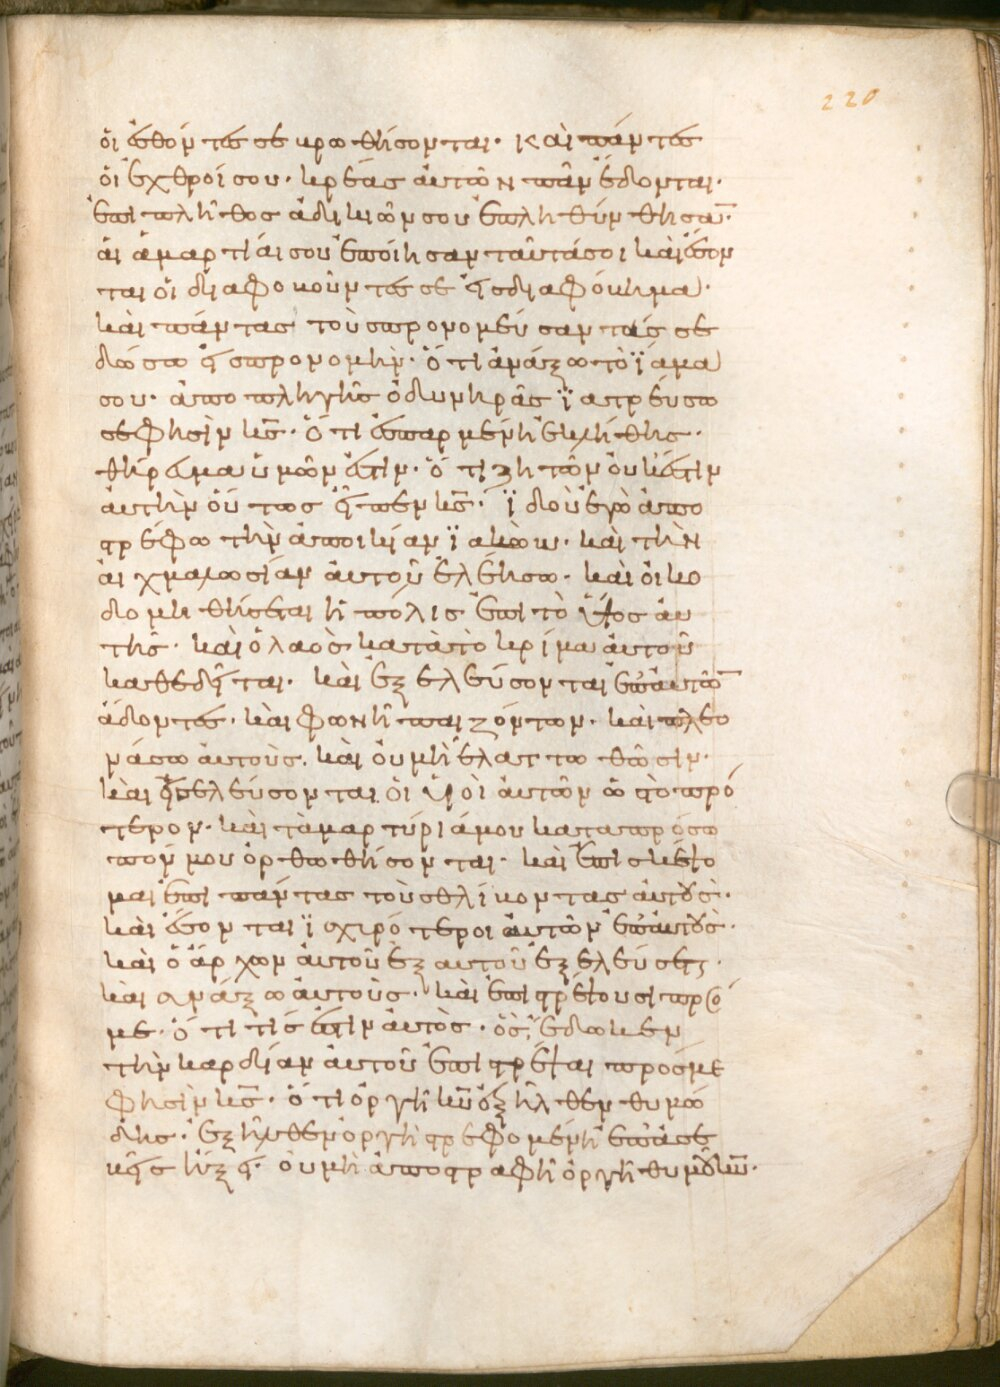 οἱ ἔσθοντές σε βρωθήσονται· καὶ πάντες
οἱ ἐχθροί σου· κρέας αὐτῶν πᾶν ἔδονται·
ἐπὶ πλῆθος ἀδικιῶν σου ἐπληθύνθησα̅·
αἱ ἁμαρτίαι σου ἐποίησαν ταῦτά σοι καὶ ἔσον
ται οἱ διαφοβοῦντές σε εἰς διαφόβημα·
καὶ πάντας τοὺς προνομεύσαντάς σε
δώσω εἰς προνομήν· ὅτι ἀνάξω τὸ ἴαμα
σου· ἀπὸ πληγῆς ὀδυνηρᾶς ϊατρεύσω
σε φησὶν κ̅ς̅· ὅτι ἐσπαρμένη ἐκλήθης·
θήρευμα ὑμῶν ἐστιν· ὅτι ζητῶν οὐκ ἔστιν
αὐτὴν οὕτως εἶπεν κ̅ς̅· ϊδοὺ ἐγὼ ἀπο
στρέφω τὴν ἀποικίαν ϊακώβ· καὶ τὴν
αἰχμαλωσίαν αὐτοῦ ἐλεήσω· καὶ οἰκο
δομηθήσεται ἡ πόλις ἐπὶ τὸ ὕψος αὐ
τῆς· καὶ ὁ λαὸς κατὰ τὸ κρίμα αὐτοῦ
καθεδεῖται· καὶ ἐξελεύσονται ἀπ' αὐτῶ̅
ᾄδοντες· καὶ φωνὴ παιζόντων· καὶ πλεο
νάσω αὐτοὺς. καὶ οὐ μὴ ἐλαττωθῶσιν·
καὶ εἰσελεύσονται οἱ υἱοὶ αὐτῶν ὡς τὸ πρό
τερον· καὶ τὰ μαρτύριά μου κατὰ πρόσω
πόν μου ὀρθωθήσονται· καὶ ἐπισκέψο
μαι ἐπὶ πάντας τοὺς θλίβοντας αὐτούς·
καὶ ἔσονται ϊσχυρότεροι αὐτῶν ἐπ' αὐτούς·
καὶ ὁ ἄρχων αὐτοῦ ἐξ αὐτοῦ ἐξελεύσεται·
καὶ συνάξω αὐτοὺς· καὶ ἐπιστρέψουσι πρό
με· ὅτι τίς ἐστιν αὐτὸς· ὃς ἔδωκεν
τὴν καρδίαν αὐτοῦ ἐπιστρέψαι πρός με
φησὶν κ̅ς̅· ὅτι ὀργὴ κ̅υ̅ ἐξῆλθεν θυμώ
δης· ἐξῆλθεν ὀργὴ στρεφομένη ἐπ' ἀσε
βεῖς ἥξει· οὐ μὴ ἀποστραφῇ ὀργὴ θυμοῦ κ̅υ̅·
220